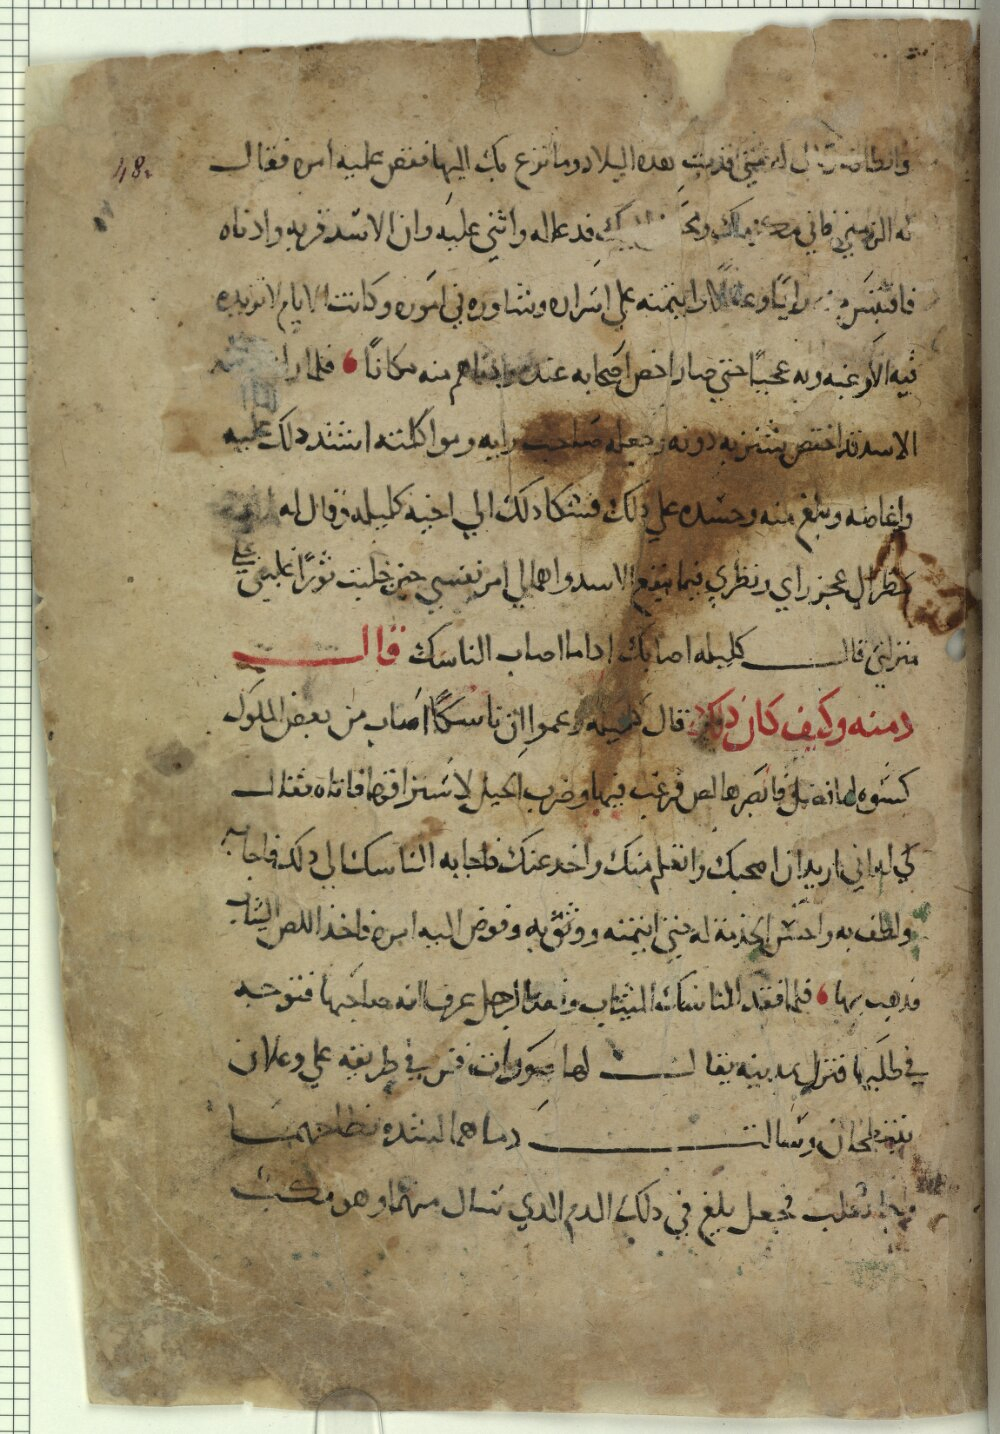 48
وانطلق قال له متى قدمت هده البلاد وما نزع بك اليها فقص عليه امره فقال
له الزمني فاني مكرمك فدعا له واثني عليه وان الاسد قربه وادناه
فاتمنه علي اسراره وشاوره في اموره وكانت الايام لا تزيده
فيه الا رغبه وبه عجبًا حتي صار اخص اصحابه عنده وادناهم منه مكانًا فلما راي دمنه
الاسد قد اختص بشنزبه دونه وجعله صاحب رايه ومواكلته اشتد دلك عليه
واغاضه وبلغ منه وحسده علي دلك فشكا دلك الي اخيه كليله وقال له
عجز راي ونظري فيما ينفع الاسد واهمالي امر نفسي حين جلبت ثورًا غلبني علي
منزلتي قال كليله اصابك اداما اصاب الناسك قال
دمنه وكيف كان دلك قال كليله زعموا ان ناسكًا اصاب من بعض الملوك
كسوه فابصرها لص فرغب فيها وضرب الحيل لاستراقها فاتاه فقال
اني اريد ان اصحبك واتعلم منك واخد عنك فاجابه الناسك الي دلك فاجابه
ولطف به واحسن الخدمة له حتي ايتمنه ووثق به وفوض اليه امره فاخد اللص الثياب
فدهب بها فلما فقد الناسك الثياب وفقد الرجل عرف انه صاحبها فتوجه
في طلبها فنزل بمدينه يقال لها فمر في طريقه علي وعلان
ينتطحان وسالت دماهما لشده نطاحهما
ثعلب فجعل يلغ في دلك الدم الدي سال منهما وهو مكب